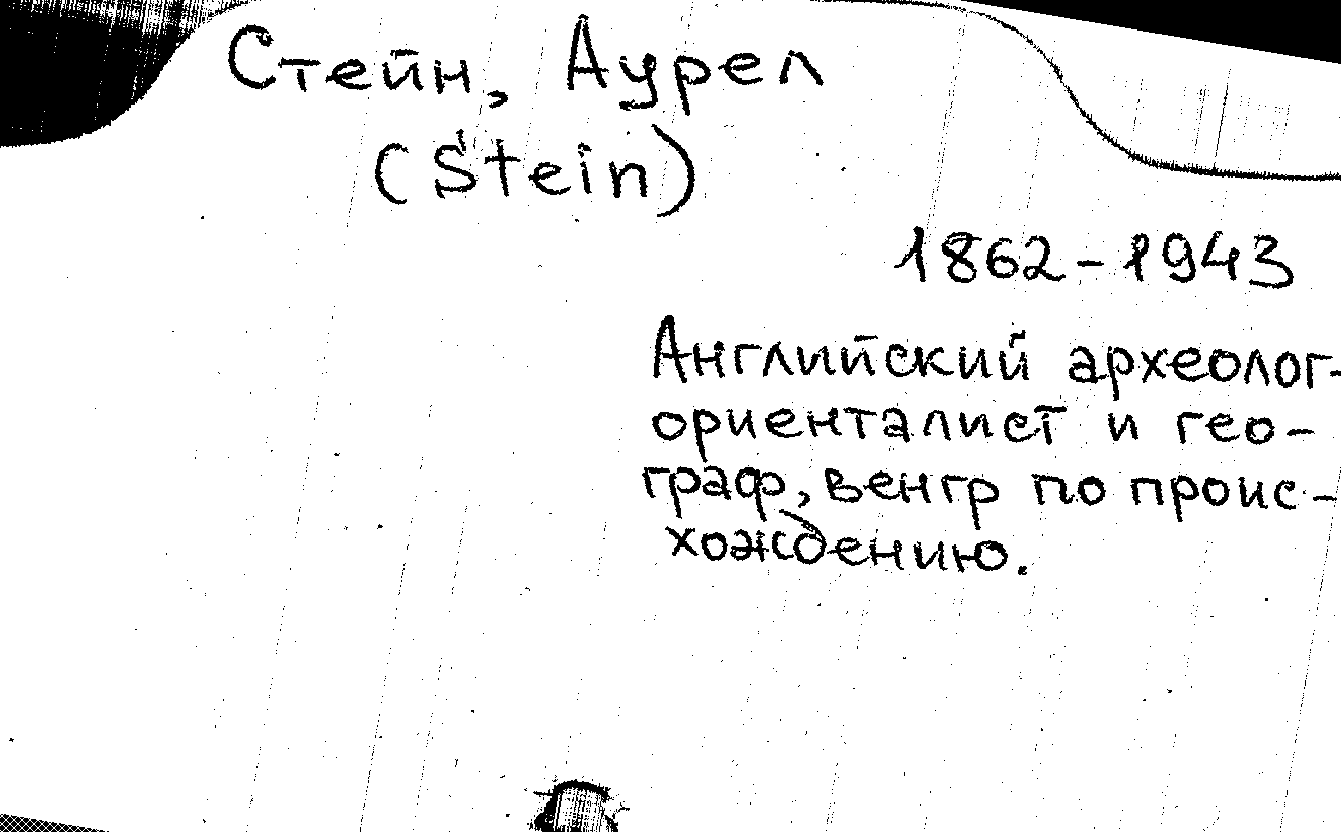 Стейн, Аурел
(Stein)
1862-1943
Английский археолог-
ориенталист и гео-
граф, венгр по проис-
хождению.